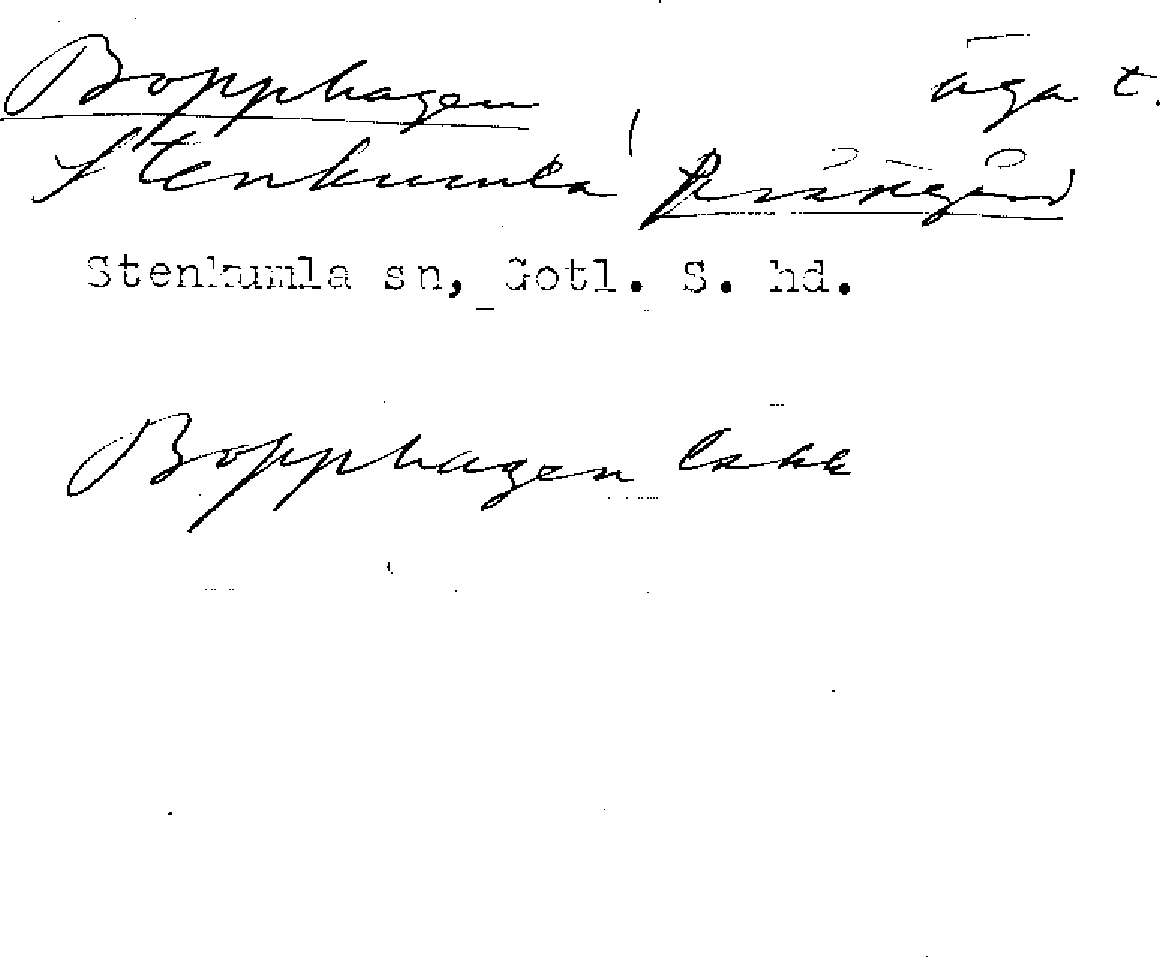 Bopphagen, äga t.
Stenkumla prästgård
Stenkumla sn, Gotl. S. hd.
Bopphagen